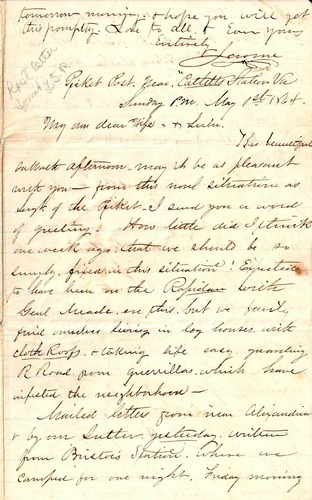 tomorrow morning. I hope you will get
this promptly. Love to all, & Ever yours
Entirely
Jerome
Picket Post. Near "Catletts Station Va
Sunday P.M. May 1st 1864.
My own dear Wife & Lulie.
This beautiful
Sabbath afternoon. may it be as pleasant
with you — from this novel situation as
Sergt of the Picket. I send you a word
of greeting. How little did I think
one week ago, that we should be so
simply fixed in this situation! Expected
to have been on the Rapidan with
Genl Meade, ere this. but we
find ourselves living in log houses. with
cloth Roofs. & taking life easy, guarding
R Road from guerrillas. which have
infested the neighborhood —
Mailed letters from near Alexandria
& by our Sutler yesterday. written
from Bristow Station. Where we
camped for one night. Friday morning